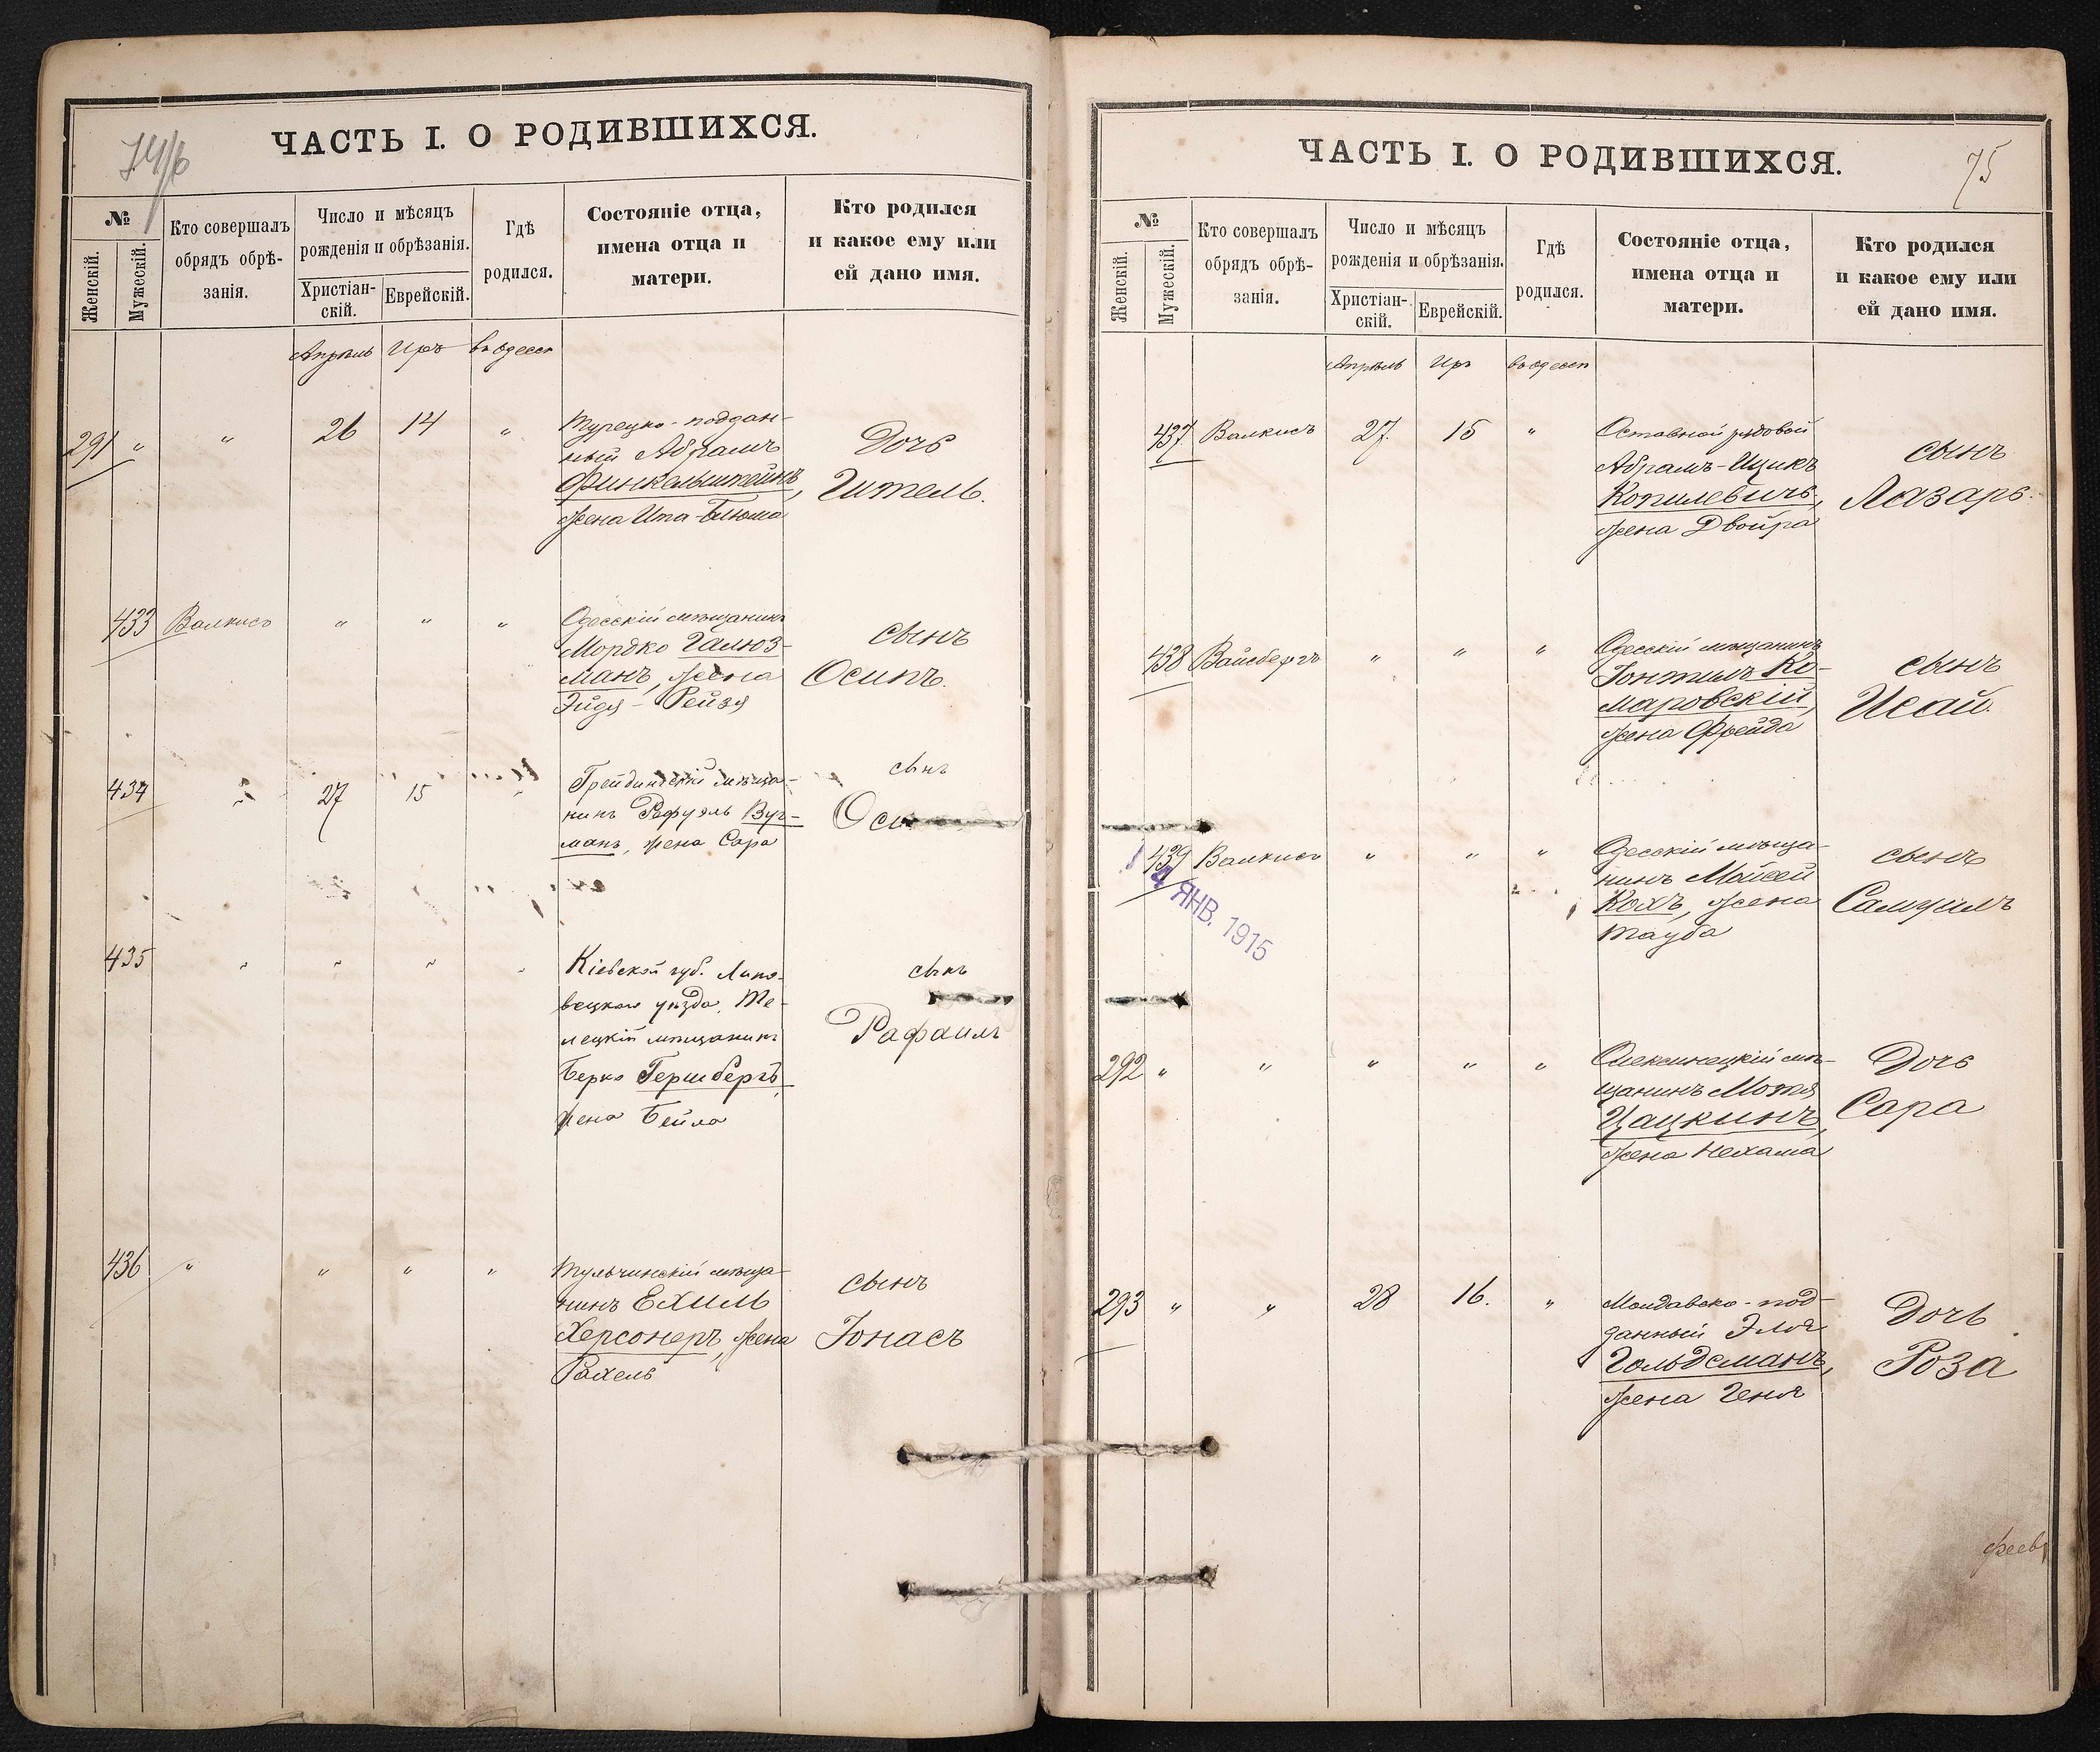 74/б
ЧАСТЬ I. О РОДИВШИХСЯ.
№
Женскій.
Мужескій.
Кто совершалъ
обрядъ обрѣ-
занія.
Число и мѣсяцъ
рожденія и обрѣзанія.
Христіан-
скій.
Еврейскій.
Гдѣ
родился.
Состояніе отца,
имена отца и
матери.
Кто родился
и какое ему или
ей дано имя.
Апрѣль Иръ въ Одессѣ
291 " " 26 14 "
Турецко-поддан-
ный Абрамъ
Финкельштейнъ,
жена Ита-Блюма
Дочь
Гитель.
433 Валкисъ " " "
Одесскій мѣщанинъ
Мордко Галюз-
манъ, жена
Эйдя-Рейзя
сынъ
Осипъ.
434 " 27 15 "
мѣща-
нинъ Рафуэль Вуг-
манъ, жена Сара
сынъ
435 " " " "
Кіевской губ. Липо-
вецкаго уѣзда, Те-
лецкій мѣщанинъ
Берко Гершбергъ,
жена Бейла
сынъ
Рафаилъ
436 " " " "
Тульчинскій мѣща-
нинъ Ехиль
Херсонеръ, жена
Рахель
сынъ
Іонасъ
ЧАСТЬ I. О РОДИВШИХСЯ.
75
№
Женскій.
Мужескій.
Кто совершалъ
обрядъ обрѣ-
занія.
Число и мѣсяцъ
рожденія и обрѣзанія.
Христіан-
скій.
Еврейскій.
Гдѣ
родился.
Состояніе отца,
имена отца и
матери.
Кто родился
и какое ему или
ей дано имя.
Апрѣль Иръ въ Одессѣ
437 Валкисъ 27. 15 "
Отставной рядовой
Абрамъ-Ицикъ
Копилевичъ,
жена Двойра
сынъ
Лазарь.
438 Вайсбергъ " " "
Одесскій мѣщанинъ
Іонтиль Ко-
маровскій,
жена Фрейда
сынъ
Исай.
439 Валкисъ " " "
Одесскій мѣща-
нинъ Мойсей
Кохъ, жена
Тауба
сынъ
Самуилъ
4 ЯНВ. 1915
292 " " " " "
мѣ-
щанинъ Мотя
Цацкинъ,
жена Нехама
Дочь
Сара
293 " " 28 16. "
Молдавско-под-
данный Эля
Гольдсманъ,
жена Геня
Дочь
Роза